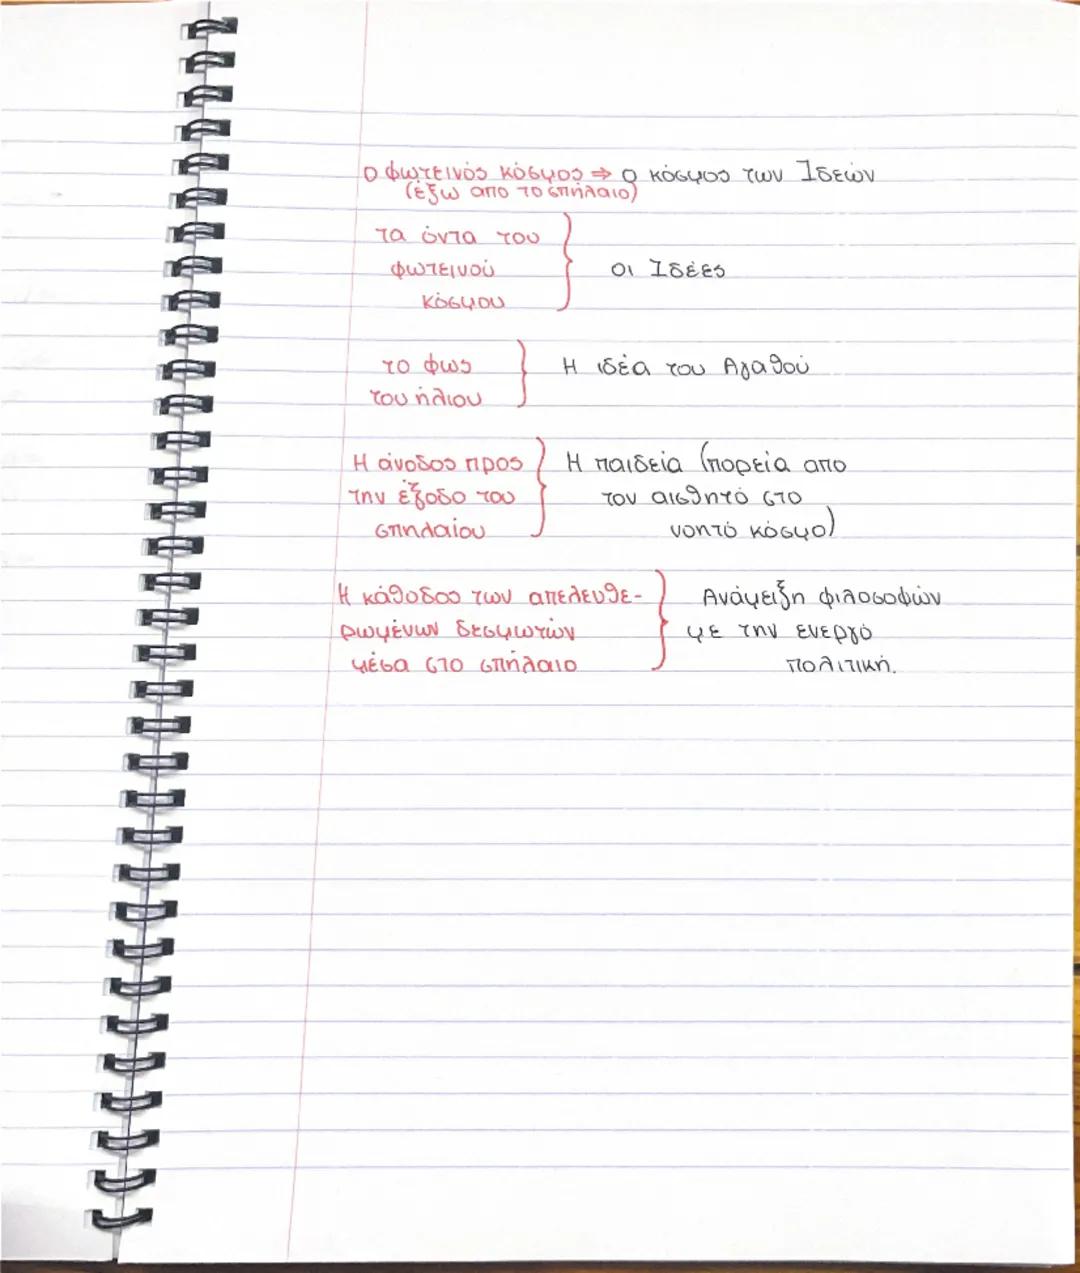 ο φωτεινός κόσμος ⇒ ο κόσμος των Ιδεών
(έξω απο το σπήλαιο)
τα όντα του
φωτεινού } οι Ιδέες
κόσμου
το φως } Η ιδέα του Αγαθού
του ήλιου
Η άνοδος προς } Η παιδεία (πορεία απο
την έξοδο του τον αισθητό στο
σπηλαίου νοητό κόσμο)
Η κάθοδος των απελευθε- } Ανάμειξη φιλοσοφών
ρωμένων δεσμωτών με την ενεργό
μέσα στο σπήλαιο πολιτική.